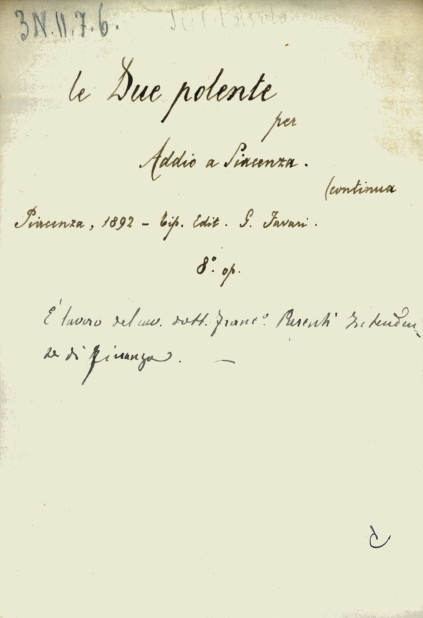 3N.II.7.6.
le Due polente
per
Addio a Piacenza.
(continua
Piacenza, 1892 - Tip. Edit. G. Favari.
8.° op.
È lavoro del cav. dott. Franc.° Parenti Intenden-
te di Finanza. —